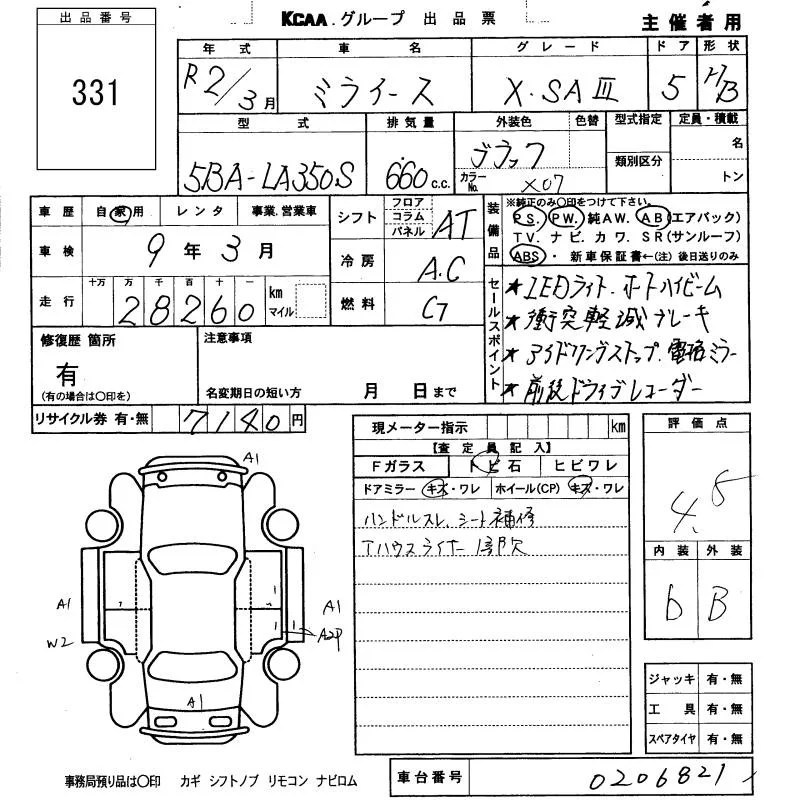 出品番号
331
KCAA.グループ 出品票
主催者用
年式 車名 グレード ドア 形状
R2/3月 ミライース X・SAⅢ 5 H/B
型式 排気量 外装色 色替 型式指定 定員・積載
5BA-LA350S 660c.c. ブラック 類別区分 名
カラーNo. X07 トン
車歴 自家用 レンタ 事業、営業車
シフト フロア コラム パネル AT
装備品
※純正のみ〇印をつけて下さい。
P.S. P.W. 純A.W. A.B(エアバック)
T.V. ナビ. カワ. S.R(サンルーフ)
ABS ・新車保証書←(注)後日送りのみ
車検 9年3月
冷房 A.C
走行 十万 万 千 百 十 一
28260 km マイル
燃料 G
セールスポイント
★LEDライト、オートハイビーム
★衝突軽減ブレーキ
★アイドリングストップ、電格ミラー
★前後ドライブレコーダー
修復歴 箇所
有
(有の場合は〇印を)
注意事項
名変期日の短い方 月 日まで
リサイクル券 有・無 7140円
現メーター指示 km
【査定員記入】
Fガラス トビ石 ヒビワレ
ドアミラー キズ・ワレ ホイール(CP) キズ・ワレ
ハンドルスレ、シート補修
評価点
4.5
内装 外装
b B
A1
A1
W2
A1
A2P
A1
ジャッキ 有・無
工具 有・無
スペアタイヤ 有・無
事務局預り品は〇印 カギ シフトノブ リモコン ナビロム
車台番号 0206821